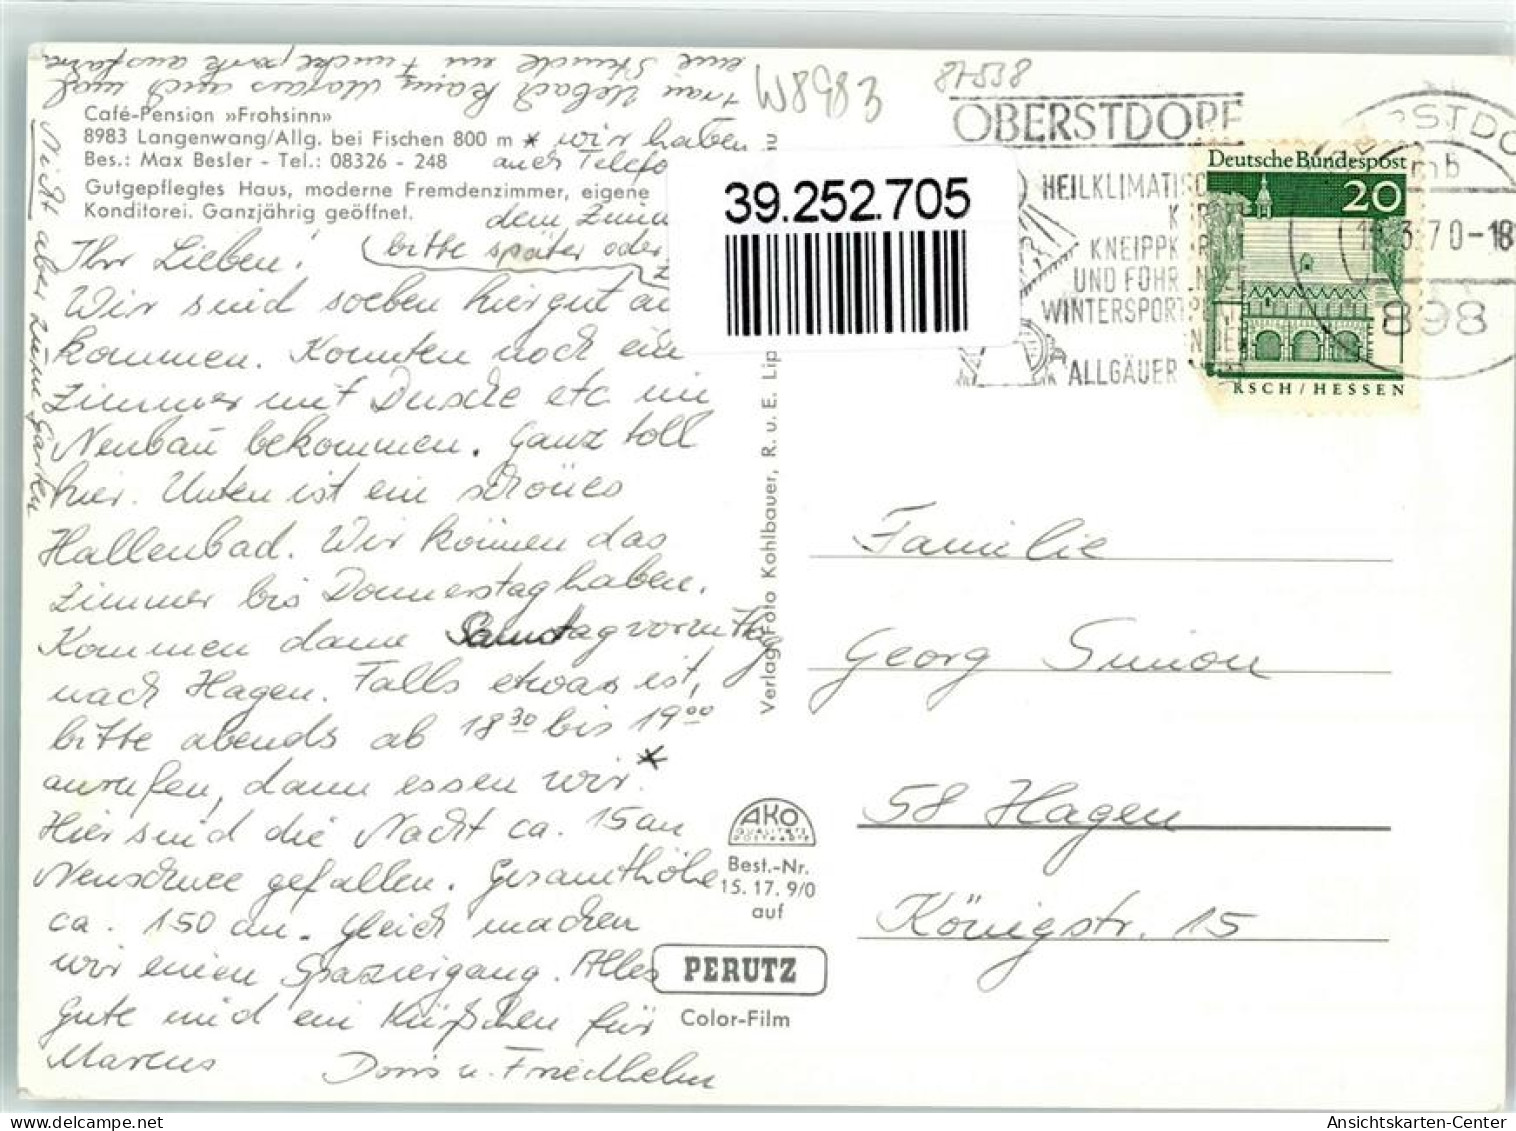 Frau Uebach kann Markus auch mal
eine Stunde im Funckepark ausfahren
Nicht aber zum Garten
Café-Pension »Frohsinn»
8983 Langenwang/Allg. bei Fischen 800 m
Bes.: Max Besler - Tel.: 08326 - 248
Gutgepflegtes Haus, moderne Fremdenzimmer, eigene
Konditorei. Ganzjährig geöffnet.
* wir haben
auch Telefo
dem Zimm
bitte später oder
Ihr Lieben!
Wir sind soeben hier gut an
kommen. Konnten noch ein
Zimmer mit Dusche etc im
Neubau bekommen. Ganz toll
hier. Unten ist ein schönes
Hallenbad. Wir können das
Zimmer bis Donnerstag haben.
Kommen dann Samstag vormittag
nach Hagen. Falls etwas ist,
bitte abends ab 18 30 bis 19 00
anrufen, dann essen wir. *
Hier sind die Nacht ca. 15 cm
Neuschnee gefallen. Gesamthöhe
ca. 150 cm. Gleich machen
wir einen Spaziergang. Alles
Gute und ein Küßchen für
Marcus Doris u. Friedhelm
W8983
87538
OBERSTDORF
HEILKLIMATISC
K R
KNEIPPK R
UND FÜHR NDE
WINTERSPORTPL
ALLGÄUER
39.252.705
Deutsche Bundespost
20
RSCH/HESSEN
RSTDO
mb
3.70-18
898
Verlag Foto Kohlbauer, R. u. E. Lip
Familie
Georg Simon
58 Hagen
Königstr. 15
AKO
QUALITÄTS
POSTKARTE
Best.-Nr.
15. 17. 9/0
auf
PERUTZ
Color-Film
Ansichtskarten-Center